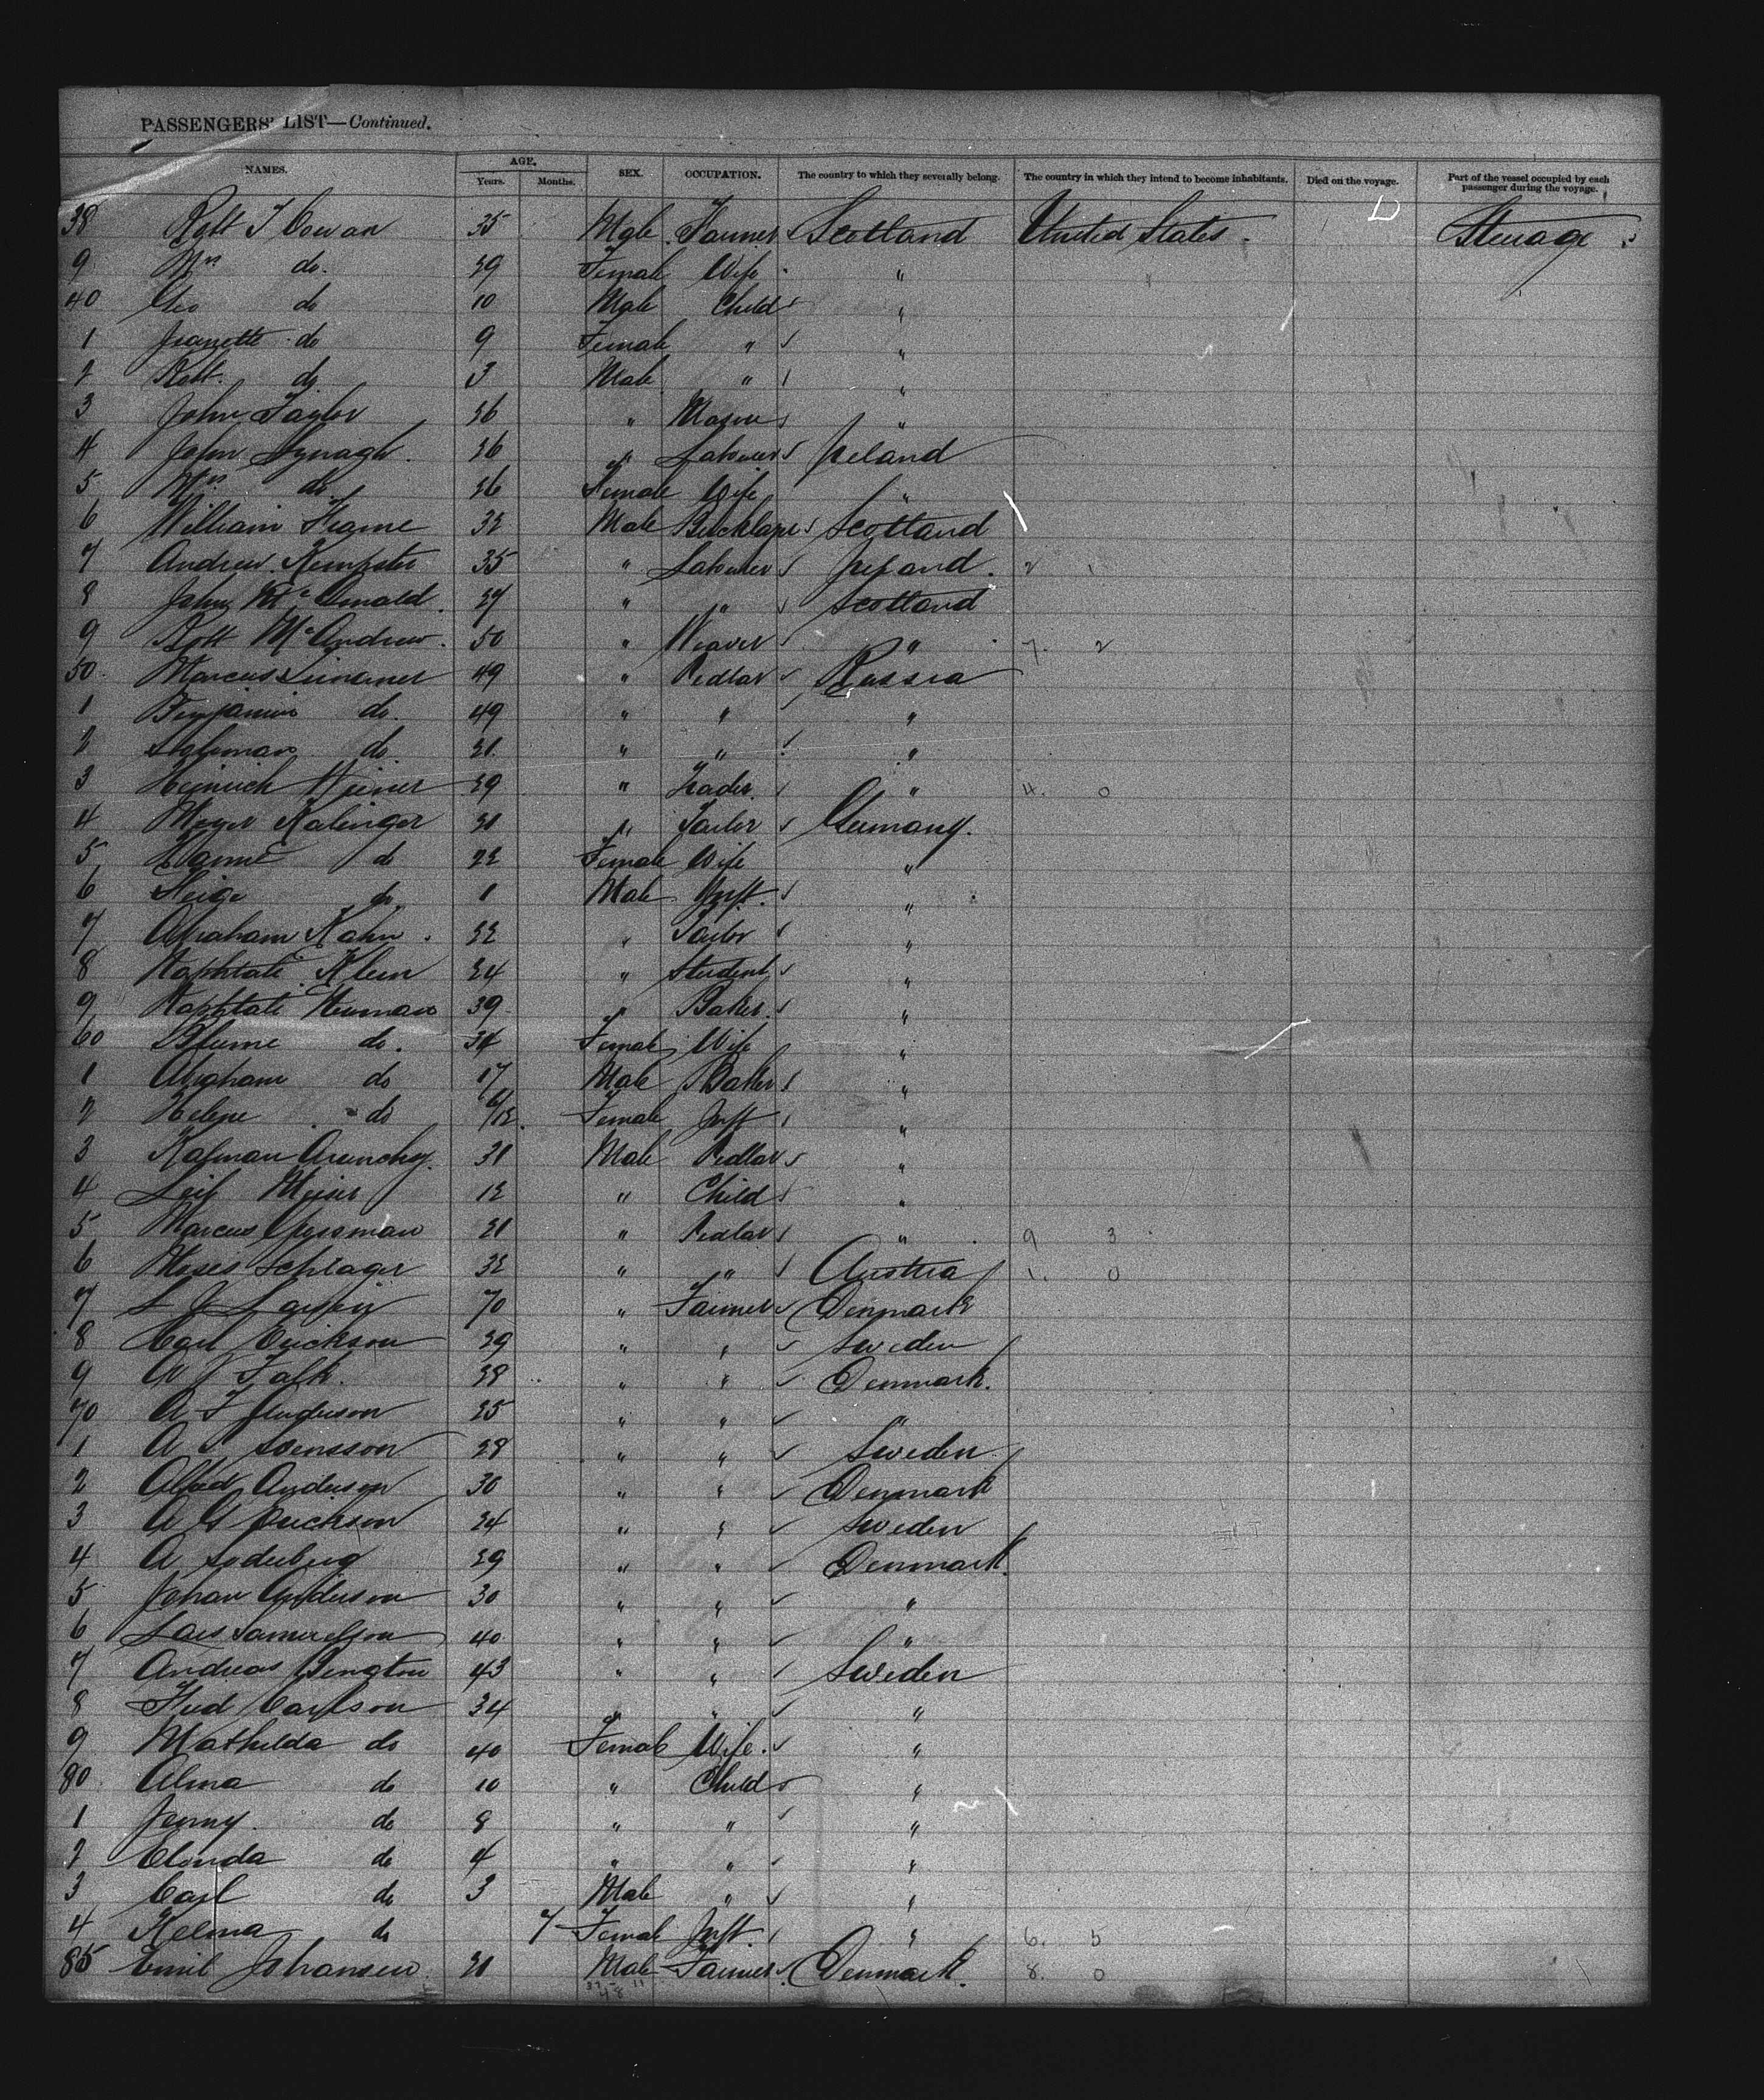 PASSENGERS' LIST—Continued.
NAMES. AGE. Years. Months. SEX. OCCUPATION. The country to which they severally belong. The country in which they intend to become inhabitants. Died on the voyage. Part of the vessel occupied by each passenger during the voyage.
38 Robt T Cowan 35 Male Farmer Scotland United States. Steerage
9 Mrs do. 29 Female Wife "
40 Geo do 10 Male Child "
1 Jeanette do 9 Female " "
2 Robt. do. 3 Male " "
3 John Taylor 26 " Mason "
4 John Lynagh. 26 " Labourer Ireland
5 Mrs do. 26 Female Wife "
6 William Frame 32 Male Scotland
7 Andrew Kempster 35 " Labourer Ireland. 2 1
8 John McDonald 27 " " Scotland
9 Robt McAndrew. 50 " Weaver " 7. 2
50 Marcus 49 " Pedlar Russia
1 Benjamin do. 49 " " "
2 do. 21. " " "
3 Heinrich 29 " Trader. " 4. 0
4 Meyer Kalinger 21 " Tailor Germany.
5 Hanne do 22 Female Wife "
6 do. 1 Male Inft. "
7 Abraham Kahn. 22 " Tailor "
8 Naphtali Klein 24 " Student "
9 Naphtali Neuman 39 " Baker. "
60 Blume do. 34 Female Wife "
1 Abraham do 17 Male Baker "
2 Helene do Female Inft "
3 Kalman 21 " Male Pedlar "
4 Leib Meier 12 " Child "
5 Marcus 21 " Pedlar " 9 3
6 Moses Schlager 32 " " Austria 1. 0
7 70 " Farmer Denmark
8 Carl Erickson 29 " " Sweden
9 Falk. 28 " " Denmark.
70 A 25 " " "
1 A Svensson 28 " " Sweden
2 Alfred Anderson 30 " " Denmark
3 A G Erickson 24 " " Sweden
4 A Soderberg 29 " " Denmark.
5 Johan Anderson 30 " " "
6 Lars Samuelson 40 " " "
7 Andreas Bengtson 43 " " Sweden
8 Fred Carlson 34 " " "
9 Mathilda do 40 Female Wife. "
80 Alma do 10 " Child "
1 Jenny. do 8 " " "
2 do 4 " " "
3 Carl do 3 Male " "
4 do 7 Female Inft " 6. 5
85 Emil Johansen 21 Male Farmer Denmark. 8. 0